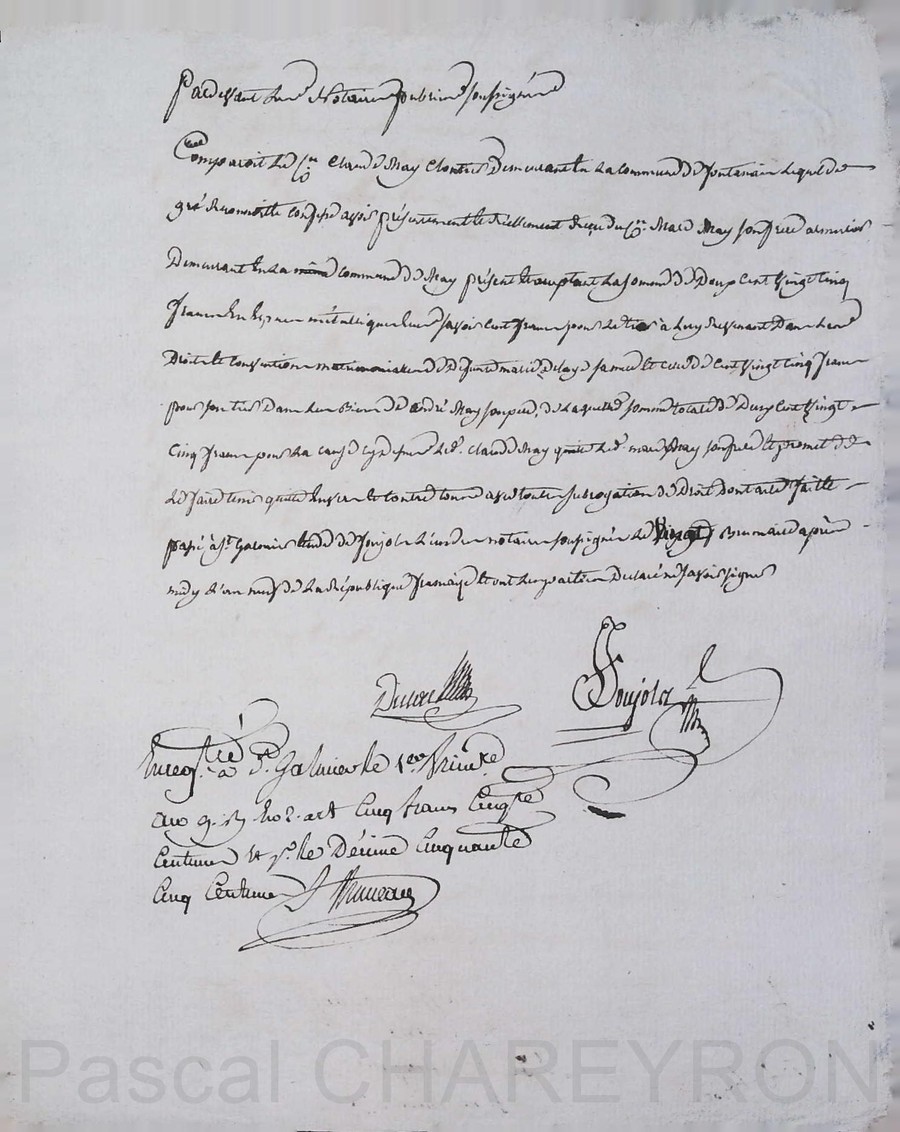 Pardevant Le Notaire public soussigné
Comparoit Le Cn Claude May Cloutier Demeurant En La Commune de fontanès Lequel de
gré Reconnoitte confesse avoir présentement et réellement Reçu du Cn. Marc May son frere armurier
Demeurant En La même commune de May présent et acceptant La somme de Deux Cent Vingt Cinq
francs En Espece métallique savoir Cent francs pour Le tier à Luy Revenant Dans Les
Droit et Convention matrimoniale de Defunte marie Delay sa mere et celle de Cent Vingt Cinq francs
pour son tier Dans Les Biens de andré May son pere, de Laquelle somme totale de Deux Cent Vingt
Cinq francs pour La cause cy dessus Led. Claude May quitte Led. marc May son frere et promet de
Le faire tenir quitte Envers et Contre tous avec toute subrogation de Droit Dont acte fait et
passé à St. Galmier Etude de Soujola L'un des notaires soussigné Le Vingt Brumaire après
midy L'an neuf de La République française et ont Les parties Declaré ne savoir signer
Soujola
Enregistré à St. Galmier le 1er frimre
an 9. fo 2. art Cinq francs Cinqte
Centimes et pr. le Décime Cinquante
Cinq Centimes